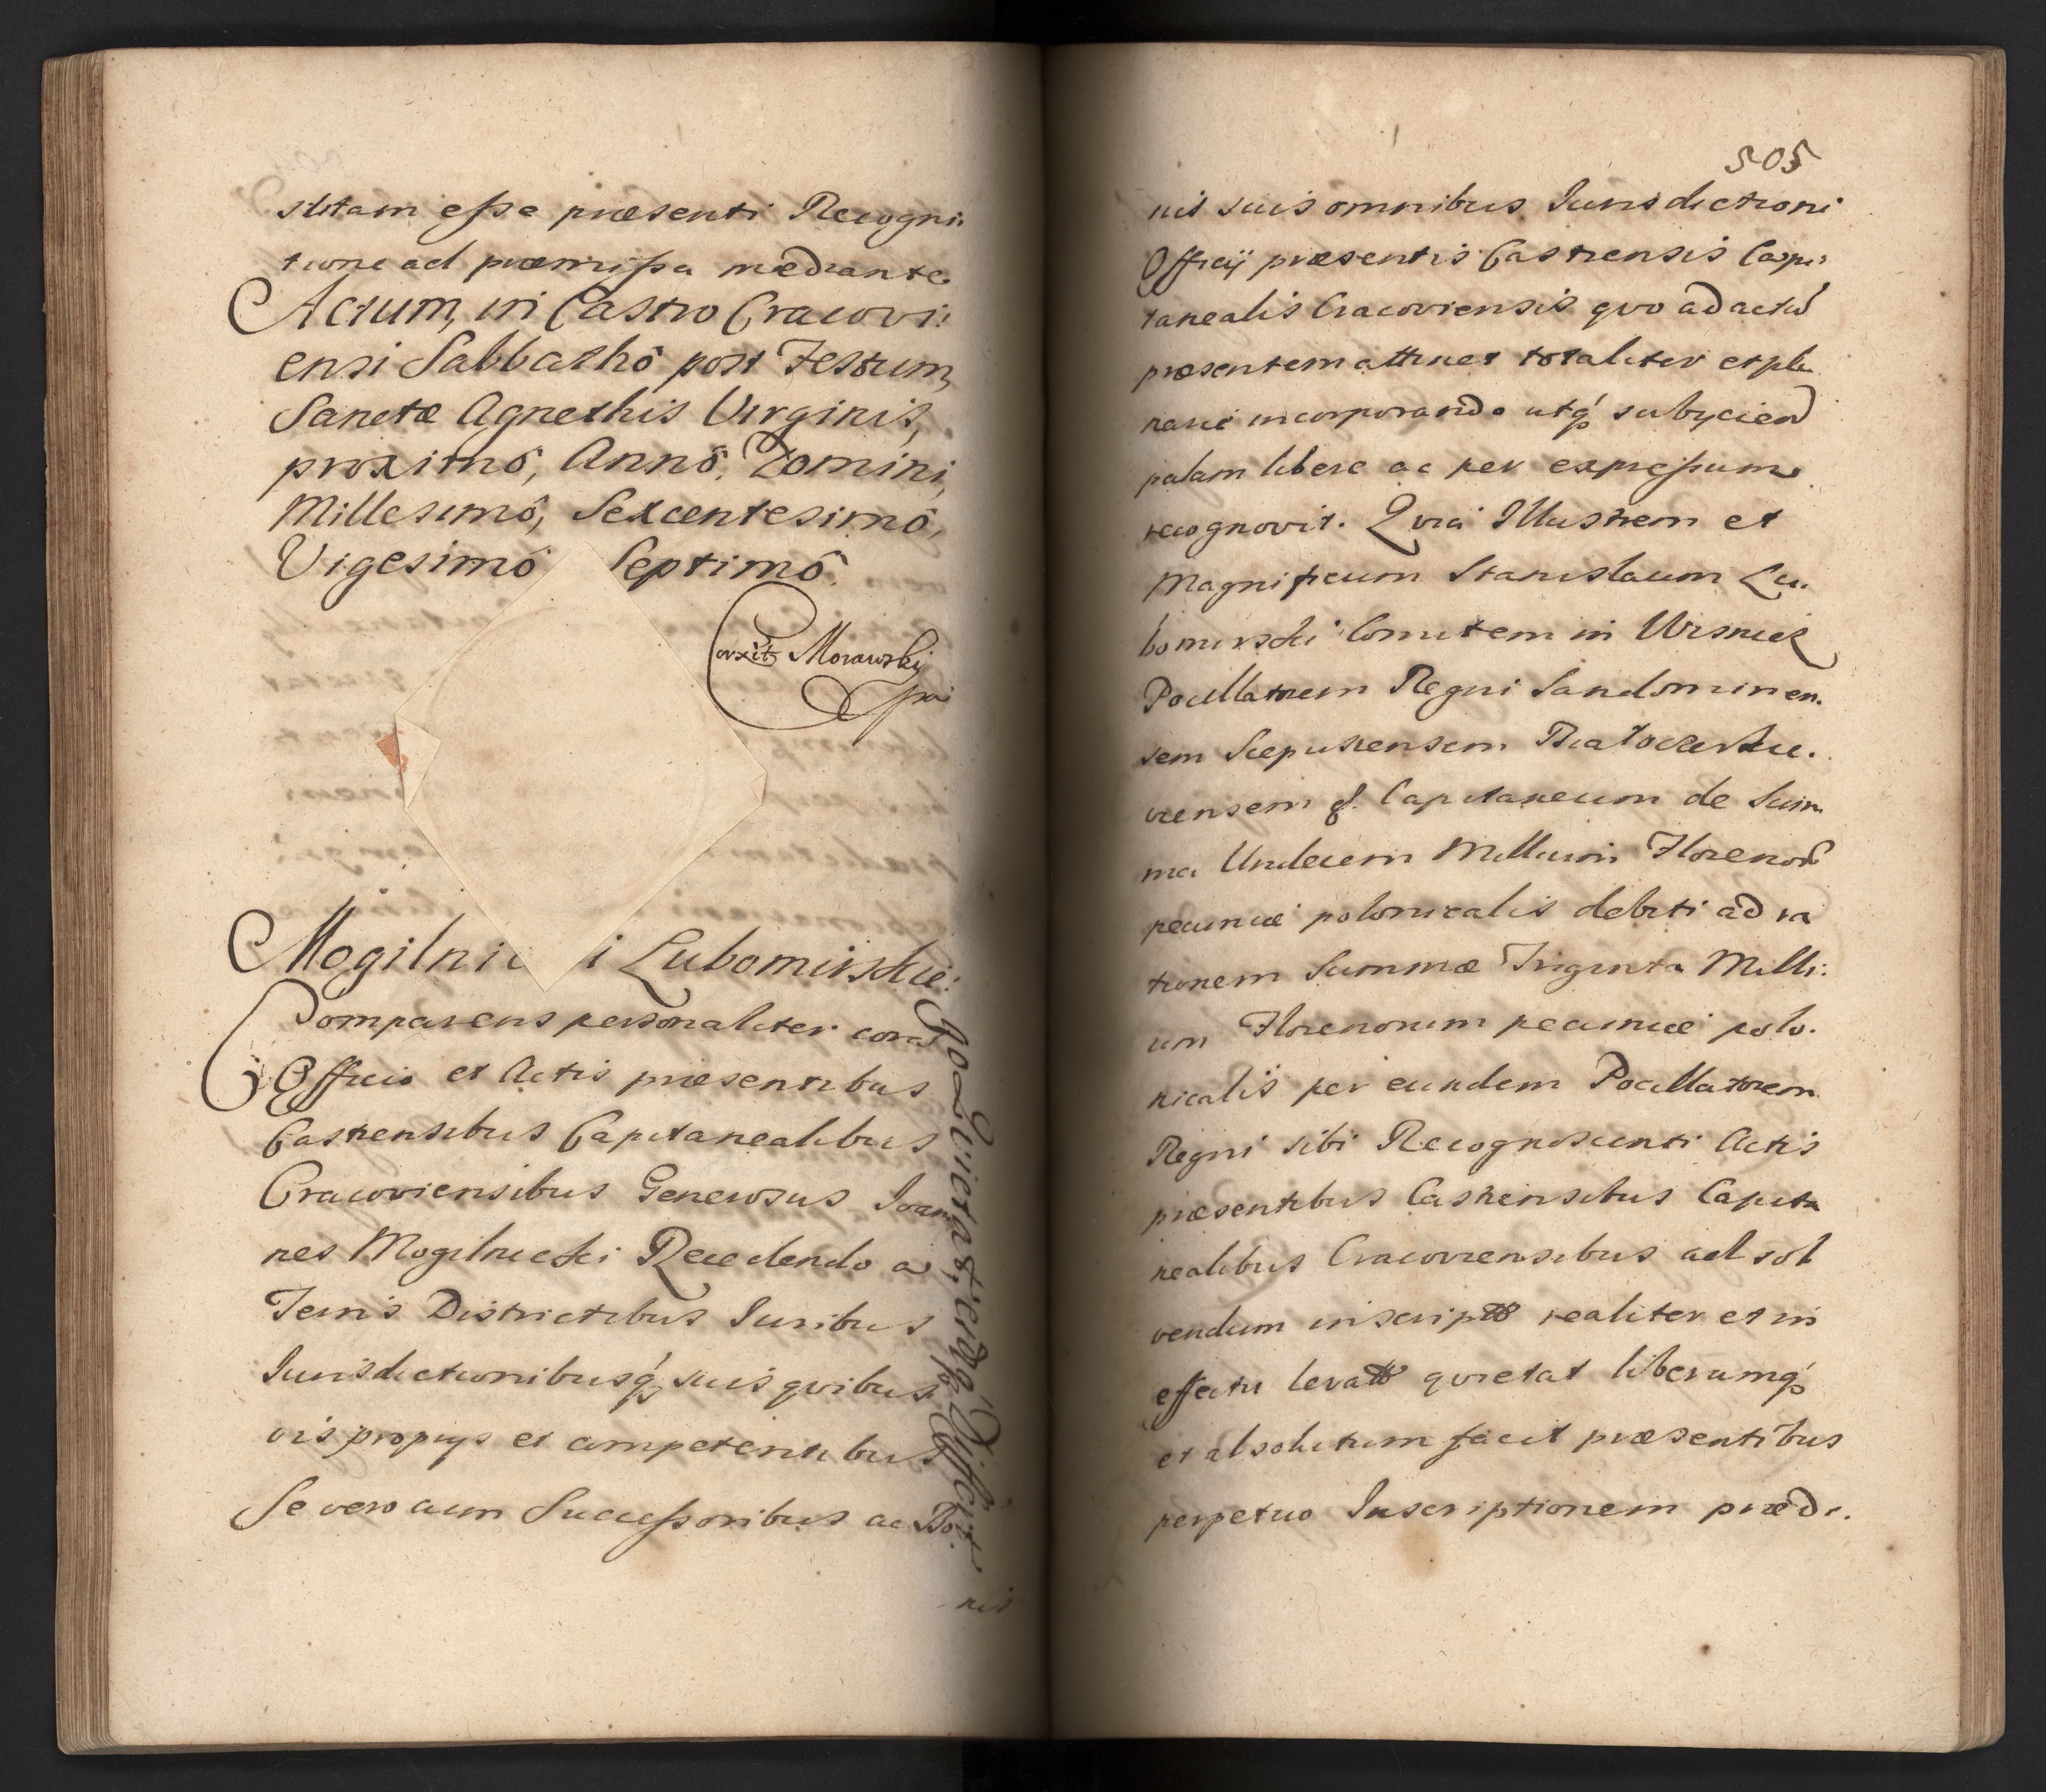 stitam eſse præsenti Recogni:
tione ad præmiſsa mediante
Actum, in Castro Cracovi:
ensi Sabbathô post Festum,
Sanctæ Agnethis Virginis,
proximô, Annô, Domini,
Millesimô, Sexcentesimô,
Vigesimô Septimô.
Morawsky
Mogilnic i Lubomirskie:
Comparens personaliter corã
Officio et Actis præsentibus
Castrensibus Capitanealibus
Cracoviensibus Generosus Ioan
nes Mogilnicki Recedendo a
Terris Districtibus Iuribus
Iurisdictionibusq́ suis quibus
vis propriys et competentibus
Se vero cum Succeſsoribus ac Bo:
nis
505
nis suis omnibus Iurisdictioni
Officij præsentis Castrensis Capi:
tanealis Cracoviensis quo ad actũ
præsentem attinet totaliter et ple
narie incorporando utq́ subyciend
palam libere ac per expreſsum
recognovit. Quia Illustrem et
Magnificum Stanislaum Lu.
bomirski Comitem in Wisnicz
Pocillatorem Regni Sandomirien.
sem Scepusiensem Białocerkie.
viensem &. Capitaneum de Sum
ma Undecem Millium Florenor
pecuniæ polonicalis debiti ad ra
tionem Summæ Triginta Milli:
um Florenorum pecuniæ polo.
nicalis per eundem Pocillatorem
Regni sibi Recognoscenti Actis
præsentibus Castrensibus Capita
nealibus Cracoviensibus ad sol
vendum inscripta realiter et in
effectu levata quietat liberumq́
et absolutum facit præsentibus
perpetuo Inscriptionem præde.